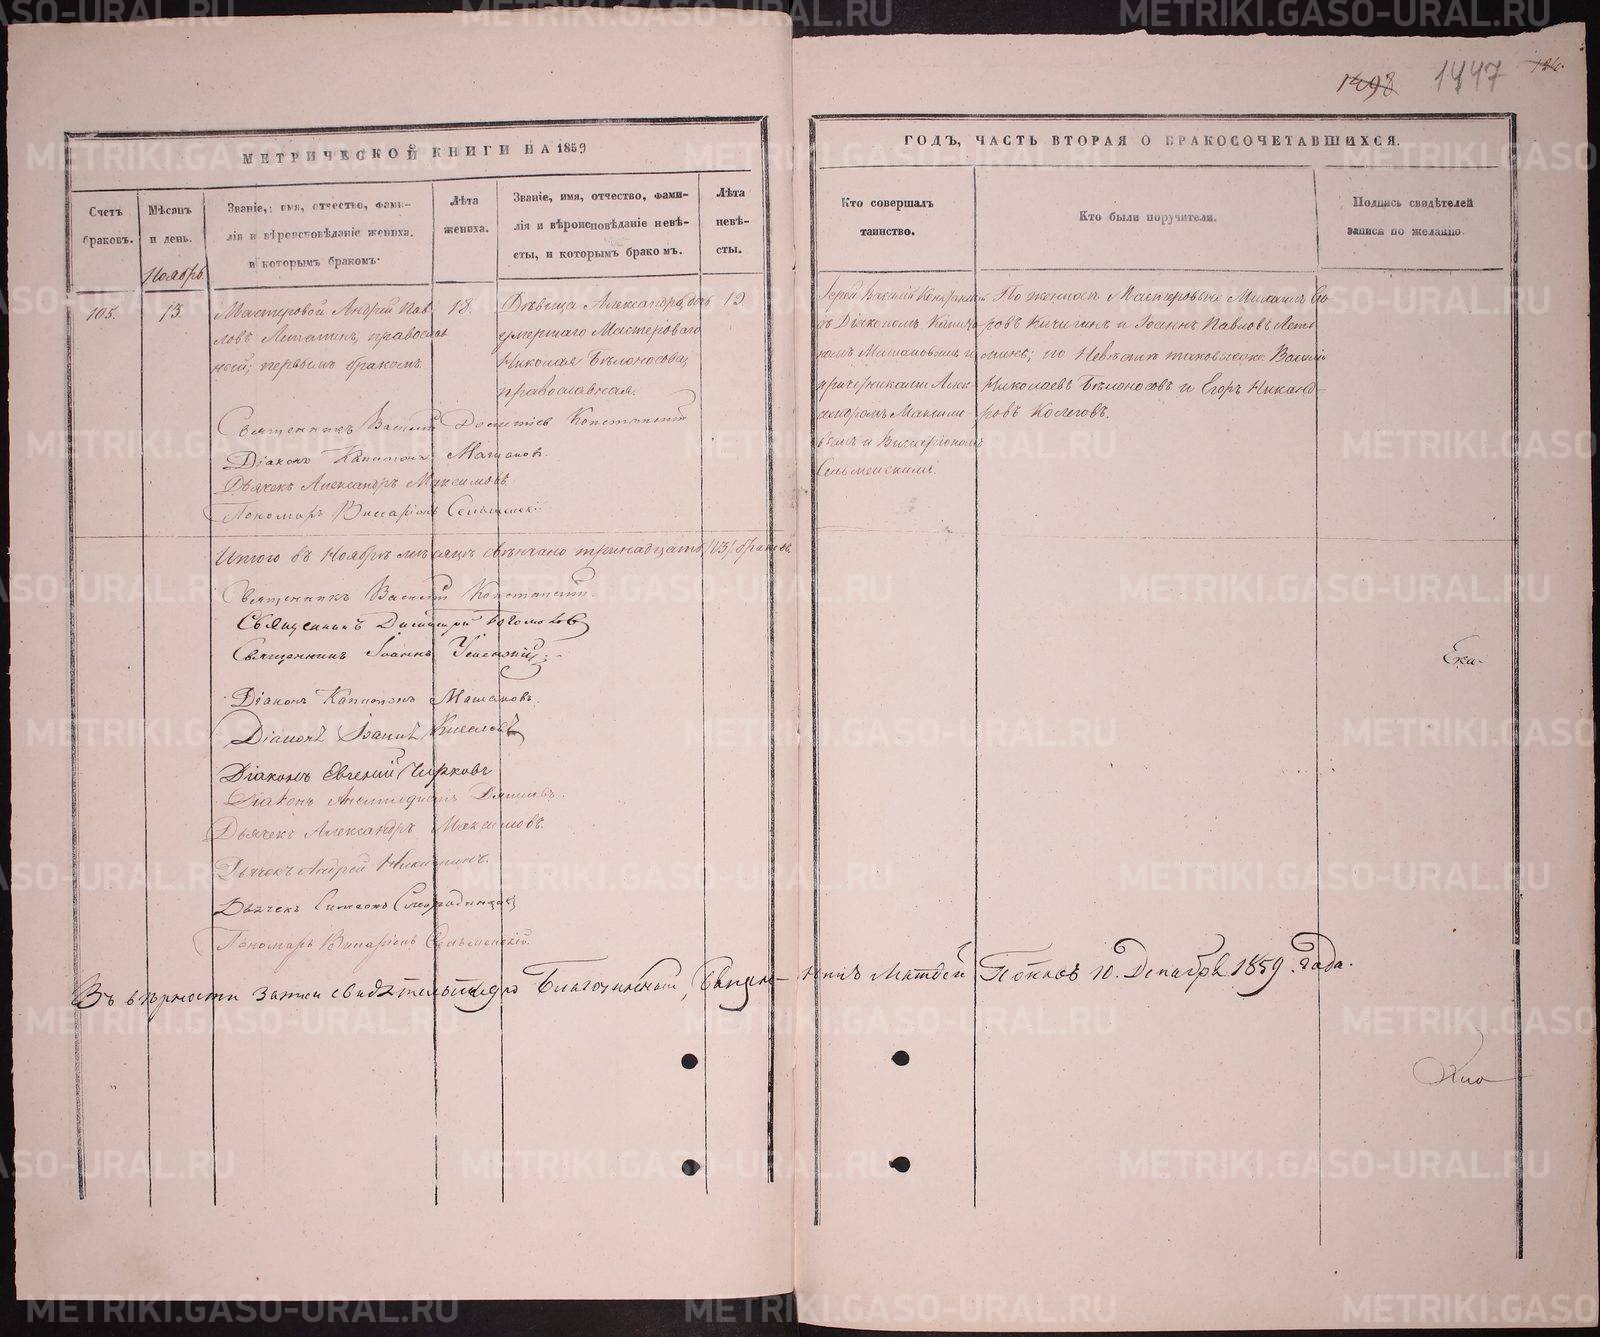 1498 1447 124.
МЕТРИЧЕСКОЙ КНИГИ НА 1859
ГОДЪ, ЧАСТЬ ВТОРАЯ О БРАКОСОЧЕТАВШИХСЯ.
Счетъ браковъ.
Мѣсяцъ и день.
Званіе, имя, отчество, фами-
лія и вѣроисповѣданіе жениха.
и которымъ бракомъ:
Лѣта жениха.
Званіе, имя, отчество, фами-
лія и вѣроисповѣданіе невѣ-
сты, и которымъ бракомъ.
Лѣта невѣ-
сты.
Кто совершалъ
таинство.
Кто были поручители.
Подпись свидѣтелей
записи по желанію.
Ноябрь
105.
15.
Мастеровой Андрей Пав-
ловъ Летеминъ, православ
ный; первымъ бракомъ.
18.
Дѣвица Александра, дочь
умершаго Мастероваго
Николая Бѣлоносова,
православная.
19.
Іерей Василій
съ Діакономъ Капито
номъ Машановымъ и
причетниками Алек-
сандромъ Максимо
вымъ и Висаріономъ
Сельменскимъ.
По женихѣ Мастеровые Михаилъ
ровъ Кичигинъ и Іоаннъ Павловъ Лете
минъ; по Невѣстѣ таковые же Василій
Николаевъ Бѣлоносовъ и Егоръ Никанд-
ровъ Колеговъ.
Священникъ Василій Констанскій
Діаконъ Капитонъ Машановъ.
Дьячекъ Александръ Максимовъ.
Пономарь Висаріонъ
Итого въ Ноябрѣ мѣсяцѣ вѣнчано тринадцать /13/ браковъ.
Священникъ Василій
Священникъ Димитрій
Священникъ Іоаннъ Успенскій
Діаконъ Капитонъ Машановъ.
Діаконъ Іоаннъ Киселевъ
Діаконъ Евгеній Чирковъ
Діаконъ
Дьячекъ Александръ Максимовъ.
Дьячекъ Андрей Никитинъ.
Дьячекъ Симеонъ
Пономарь Висаріонъ Сельменскій.
Ека-
Въ вѣрности записи свидѣтельствую Благочинный, Священ-никъ Матфей Поповъ 10. Декабря 1859. года.
METRIKI.GASO-URAL.RU